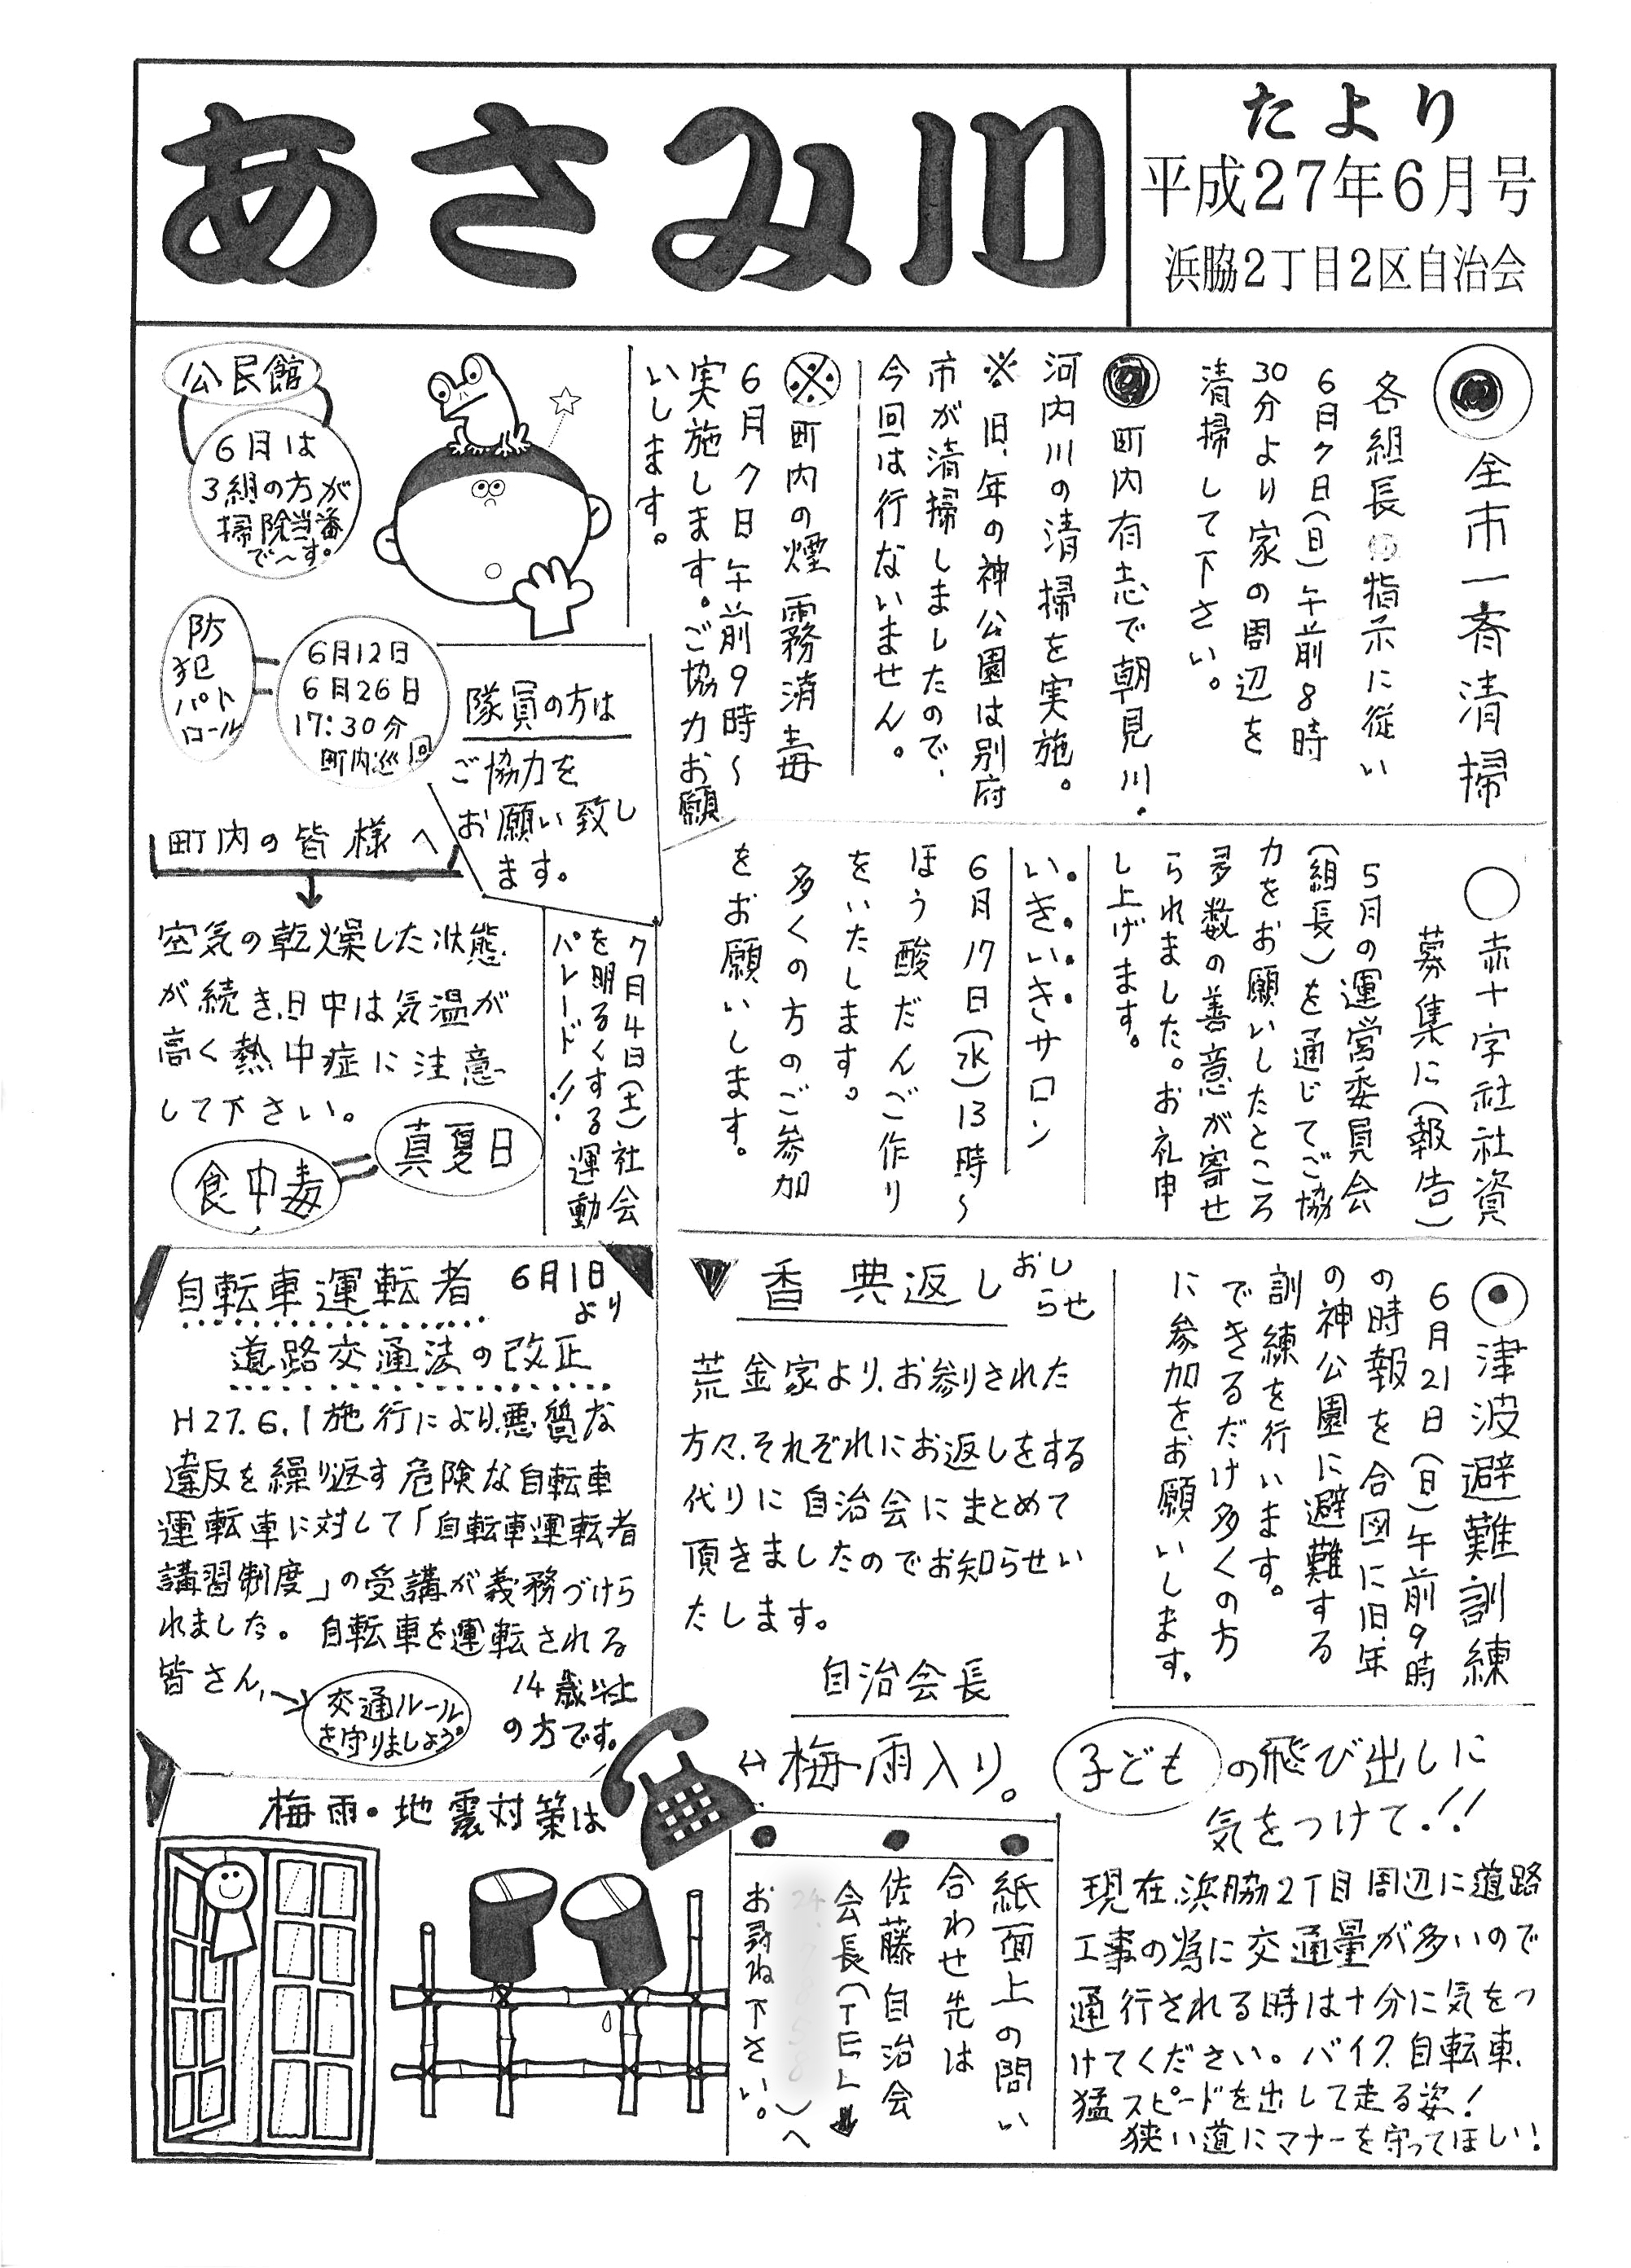 あさみ川
たより
平成27年6月号
浜脇2丁目2区自治会
全市一斉清掃
各組長の指示に従い
6月7日(日)午前8時
30分より家の周辺を
清掃して下さい。
町内有志で朝見川・
河内川の清掃を実施。
※旧、年の神公園は別府
市が清掃しましたので、
今回は行ないません。
※町内の煙霧消毒
6月7日午前9時〜
実施します。ご協力お願
いします。
公民館
6月は
3組の方が
掃除当番
で〜す。
防
犯
パト
ロール
6月12日
6月26日
17:30分
町内巡回
隊員の方は
ご協力を
お願い致し
ます。
町内の皆様へ
空気の乾燥した状態
が続き、日中は気温が
高く熱中症に注意
して下さい。
食中毒
真夏日
7月4日(土)社会
を明るくする運動
パレード!!
○赤十字社社資
募集に(報告)
5月の運営委員会
(組長)を通じてご協
力をお願いしたところ
多数の善意が寄せ
られました。お礼申
し上げます。
いきいきサロン
6月17日(水)13時〜
ほう酸だんご作り
をいたします。
多くの方のご参加
をお願いします。
津波避難訓練
6月21日(日)午前9時
の時報を合図に旧、年
の神公園に避難する
訓練を行います。
できるだけ多くの方
に参加をお願いします。
▼香典返しおし
らせ
荒金家より、お参りされた
方々、それぞれにお返しをする
代りに自治会にまとめて
頂きましたのでお知らせい
たします。
自治会長
自転車運転者 6月1日
より
道路交通法の改正
H27.6.1施行により、悪質な
違反を繰り返す危険な自転車
運転車に対して「自転車運転者
講習制度」の受講が義務づけら
れました。自転車を運転される
皆さん、
14歳以上
の方です。
交通ルール
を守りましょう。
梅雨入り。
子どもの飛び出しに
気をつけて!!
現在、浜脇2丁目周辺に道路
工事の為に交通量が多いので
通行される時は十分に気をつ
けてください。バイク、自転車、
猛スピードを出して走る姿!
狭い道にマナーを守ってほしい!
紙面上の問い
合わせ先は
佐藤自治会
会長(TEL
)へ
お尋ね下さい。
梅雨・地震対策は